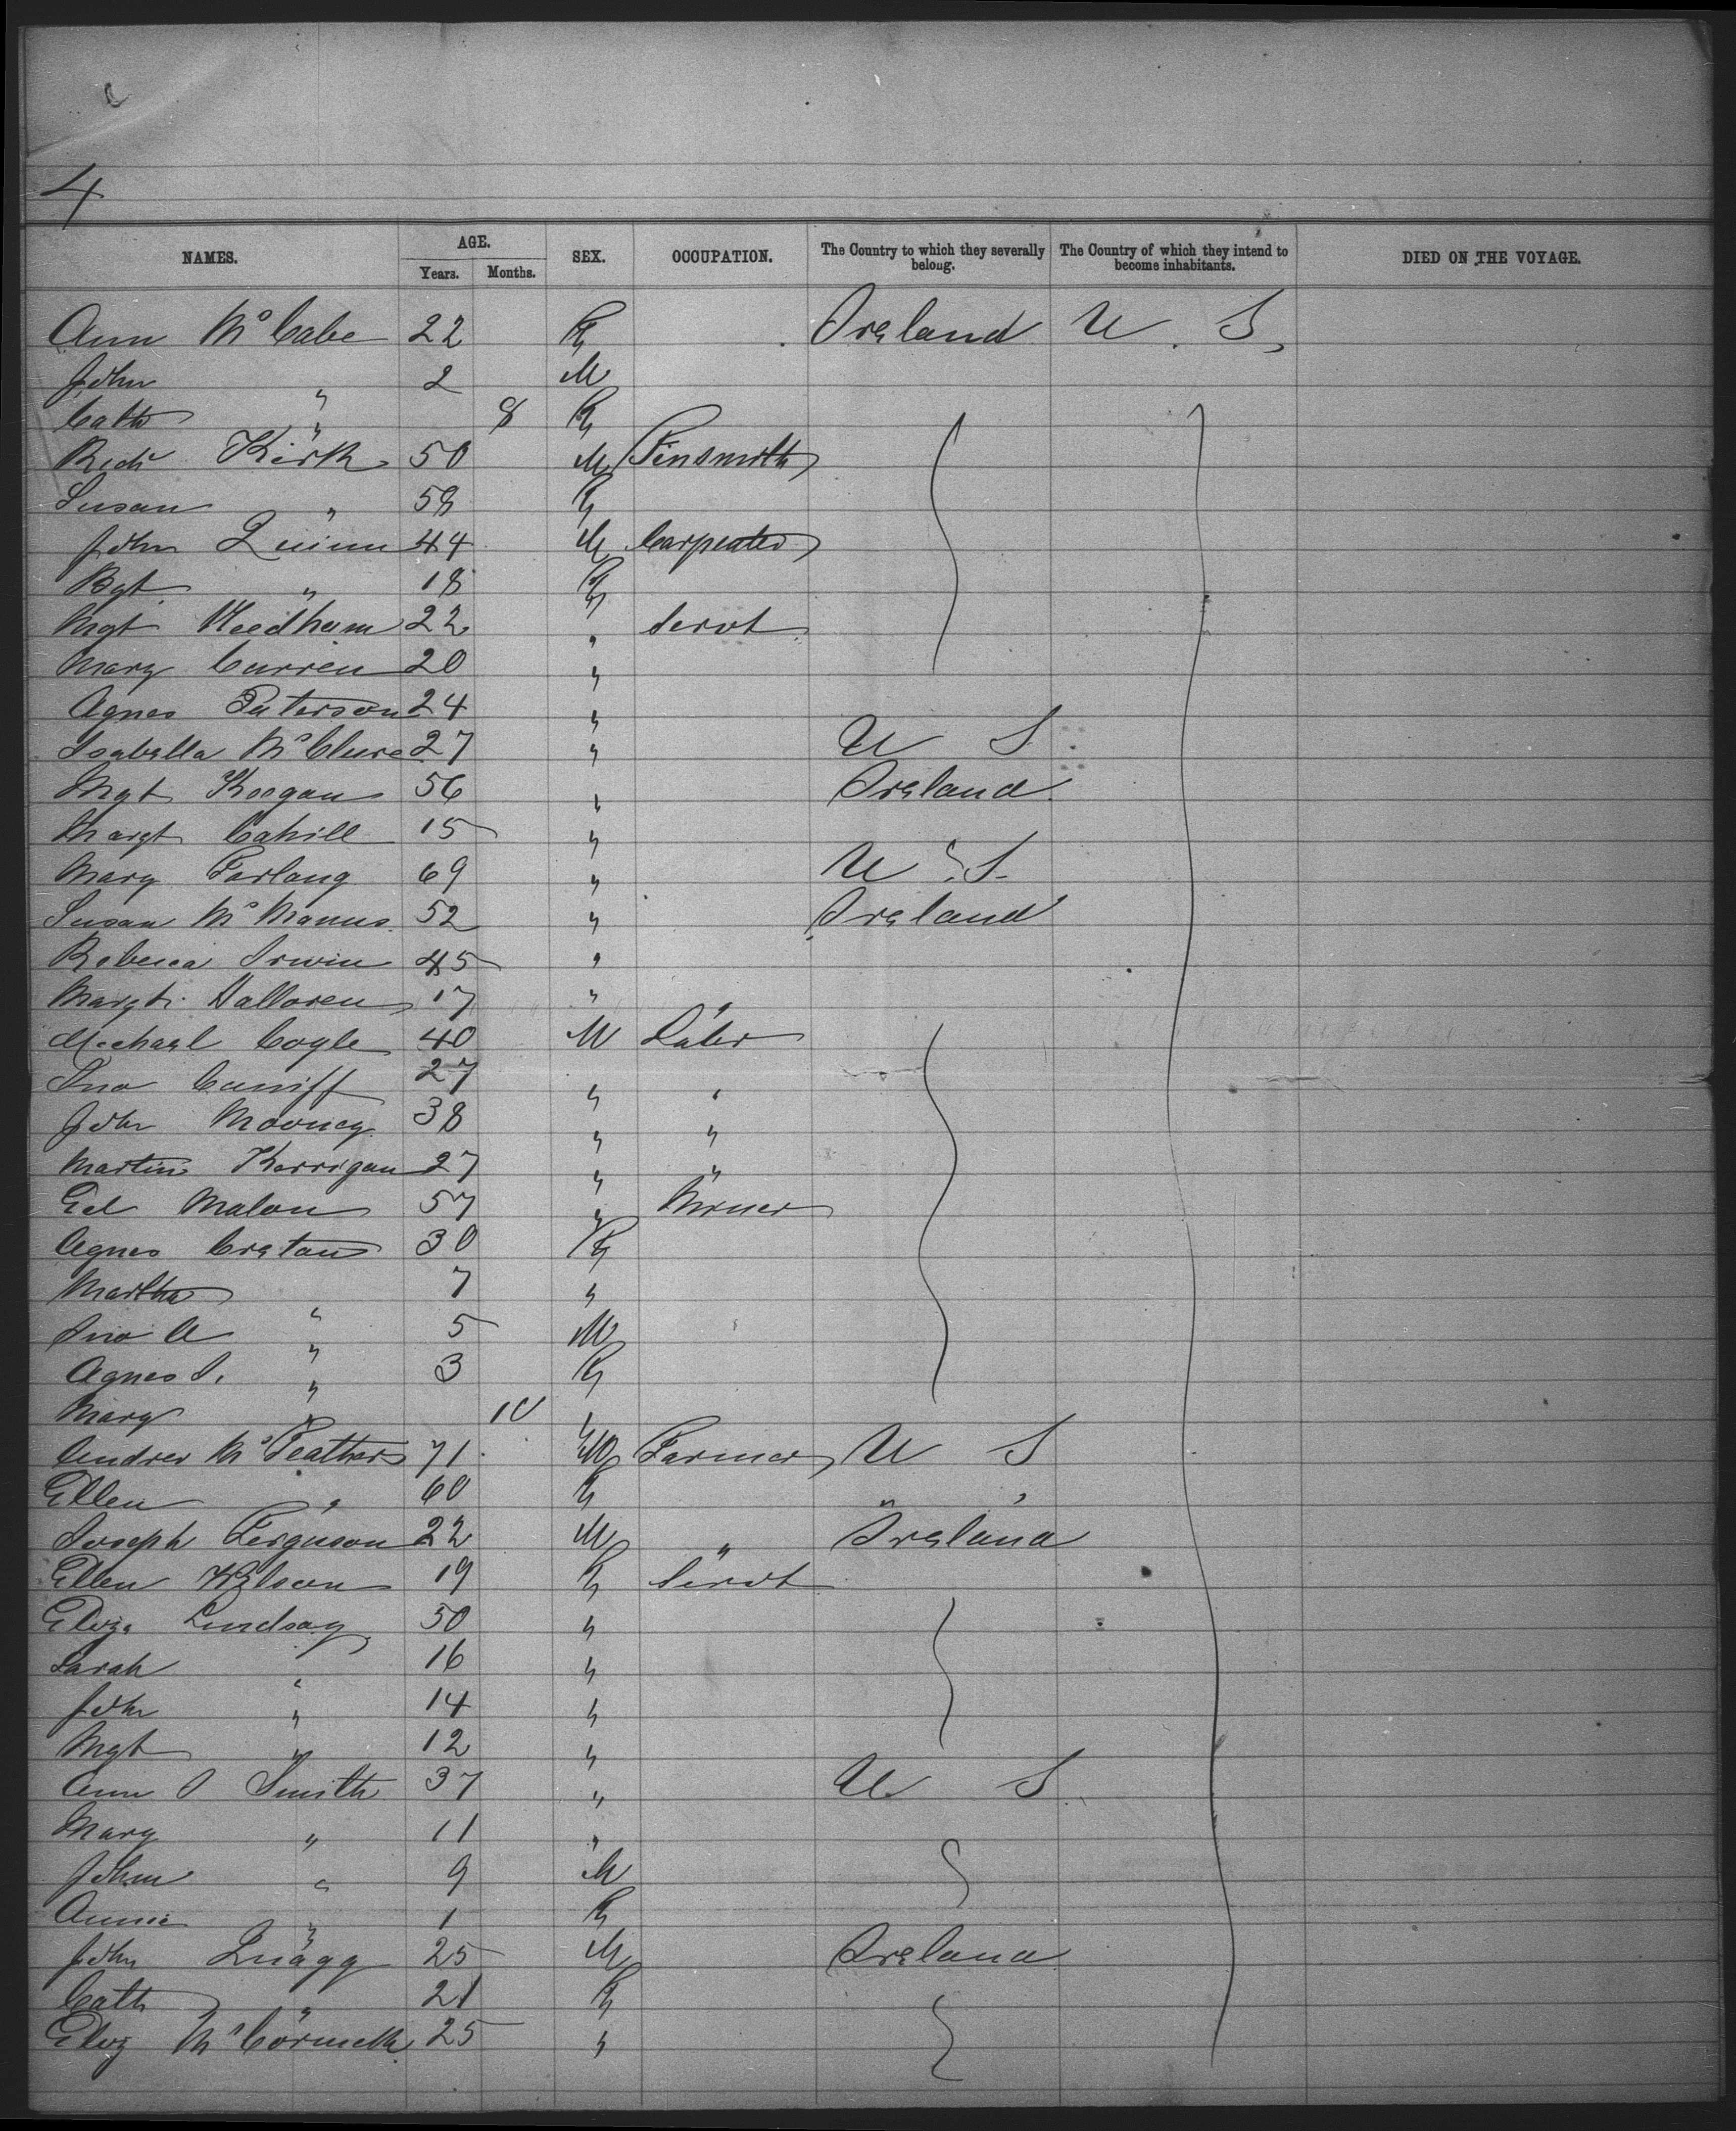 4
NAMES. AGE. SEX. OCCUPATION. The Country to which they severally belong. The Country of which they intend to become inhabitants. DIED ON THE VOYAGE.
Years. Months.
Ann McCabe 22 F Ireland U. S.
John " 2 M
Cath " 8 F
Richd Kirk 50 M Tinsmith
Susan " 58 F
John Quinn 44 M Carpenter
Bgt " 18 F
Mgt Needham 22 " Servt
Mary Curren 20 "
Agnes Paterson 24 "
Isabella McClure 27 " U S
Mgt Keegan 56 " Ireland
Margt Cahill 15 "
Mary Farlang 69 " U S
Susan McManus 52 " Ireland
Rebecca Irwin 45 "
Margt Halloren 17 "
Michael Cogle 40 M Labr
Jno Cuniff 27 " "
John Mooney 38 " "
Martin Kerrigan 27 " "
Ed Malon 57 " Miner
Agnes Creton 30 F
Martha " 7 "
Jno A " 5 M
Agnes J. " 3 F
Mary " 10 "
Andrew McFeathers 71 M Farmer U S
Ellen " 60 F " "
Joseph Ferguson 22 M " Ireland
Ellen Wilson 19 F Servt
Eliza Lindsay 50 "
Sarah " 16 "
John " 14 "
Mgt " 12 "
Ann J Smith 37 " U S
Mary " 11 "
John " 9 M
Annie " 1 F
John Quagg 25 M Ireland
Cath " 21 F
Eliz McCormick 25 "